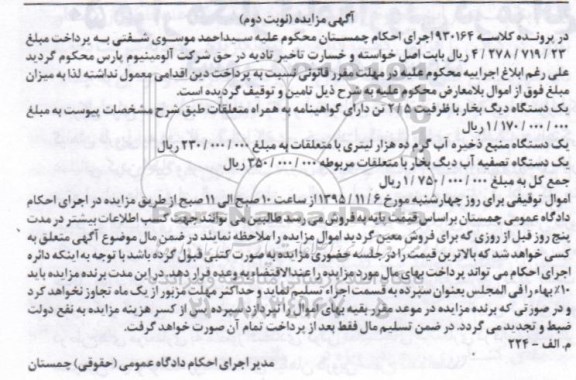 آگهی مزایده (نوبت دوم)
در پرونده کلاسه ۹۳۰۱۶۴ اجرای احکام چمستان محکوم علیه سیداحمد موسوی شفتی به پرداخت مبلغ
۲۳ / ۷۱۹ / ۲۷۸ / ۴ ریال بابت اصل خواسته و خسارت تاخیر تادیه در حق شرکت آلومینیوم پارس محکوم گردید
علی رغم ابلاغ اجراییه محکوم علیه در مهلت مقرر قانونی نسبت به پرداخت دین اقدامی معمول نداشته لذا به میزان
مبلغ فوق از اموال بلامعارض محکوم علیه به شرح ذیل تامین و توقیف گردیده است.
یک دستگاه دیگ بخار با ظرفیت ۵ / ۲ تن دارای گواهینامه به همراه متعلقات طبق شرح مشخصات پیوست به مبلغ
۰۰۰ / ۰۰۰ / ۱۷۰ / ۱ ریال
یک دستگاه منبع ذخیره آب گرم ده هزار لیتری با متعلقات به مبلغ ۰۰۰ / ۰۰۰ / ۲۳۰ ریال
یک دستگاه تصفیه آب دیگ بخار با متعلقات مربوطه ۰۰۰ / ۰۰۰ / ۳۵۰ ریال
جمع کل به مبلغ ۰۰۰ / ۰۰۰ / ۷۵۰ / ۱ ریال
اموال توقیفی برای روز چهارشنبه مورخ ۶ / ۱۱ / ۱۳۹۵ از ساعت ۱۰ صبح الی ۱۱ صبح از طریق مزایده در اجرای احکام
دادگاه عمومی چمستان براساس قیمت پایه به فروش می رسد طالبین می توانند جهت کسب اطلاعات بیشتر در مدت
پنج روز قبل از روزی که برای فروش معین گردید اموال مزایده را ملاحظه نمایند در ضمن مال موضوع آگهی متعلق به
کسی خواهد شد که بالاترین قیمت را در جلسه حضوری مزایده به صورت کتبی قبول کرده باشد با توجه به اینکه دائره
اجرای احکام می تواند پرداخت بهای مال مورد مزایده را عندالاقتضاء به وعده قرار دهد. در این مدت برنده مزایده باید
۱۰٪ بهاء را فی المجلس بعنوان سپرده به قسمت اجراء تسلیم نماید و حداکثر مهلت مزبور از یک ماه تجاوز نخواهد کرد
و در صورتی که برنده مزایده در موعد مقرر بقیه بهای اموال را نپردازد سپرده پس از کسر هزینه مزایده به نفع دولت
ضبط و تجدید می گردد. در ضمن تسلیم مال فقط بعد از پرداخت تمام آن صورت خواهد گرفت.
م. الف - ۲۲۴
مدیر اجرای احکام دادگاه عمومی (حقوقی) چمستان